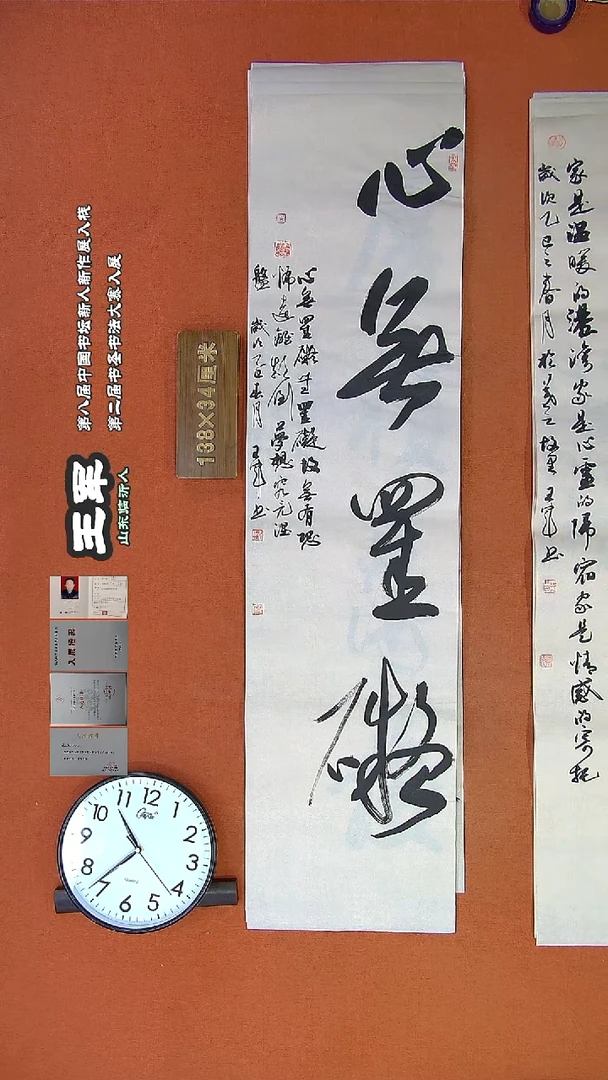 第八届中国书坛新人新作展入栈
第二届书圣书法大赛入展
王军
山东临沂人
入展证书
138×34厘米
心無罣礙
心無罣礙無罣礙故無有恐
怖遠離顛倒夢想究竟涅
槃 歲次乙巳春月 王軍书
家是温暖的港湾家是心靈的歸宿家是情感的寄托
歲次乙巳之春月於羲之故里王軍书
12
1
2
3
4
5
6
7
8
9
10
11